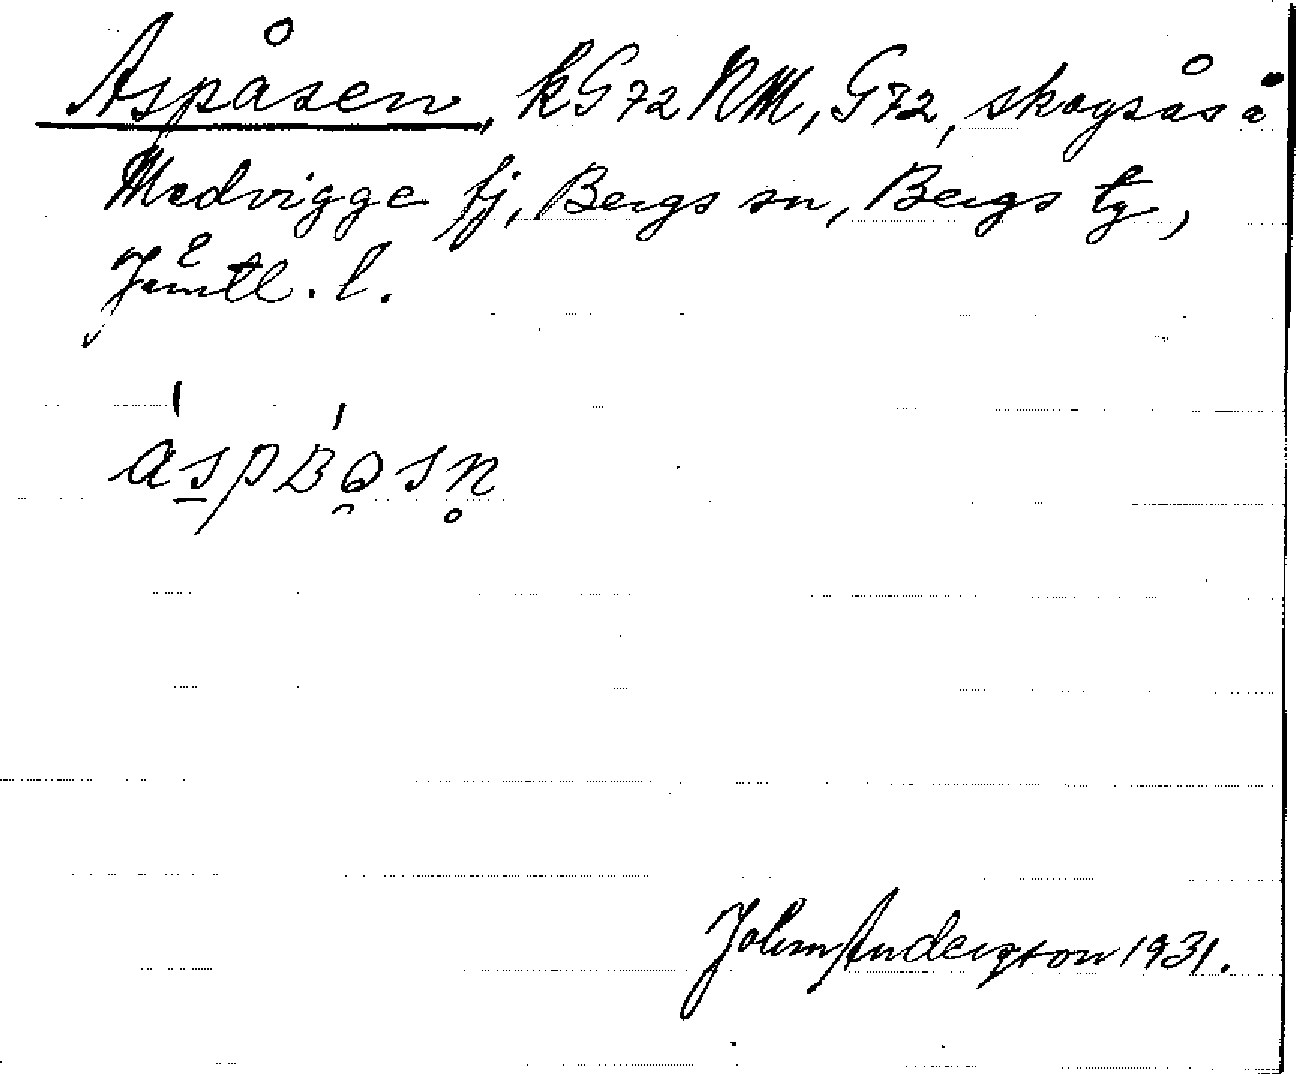 Aspåsen, kG72NM, G72, skogsås å
Medvigge fj, Bergs sn, Bergs tg,
Jämtl. l.
John Andersson 1931.